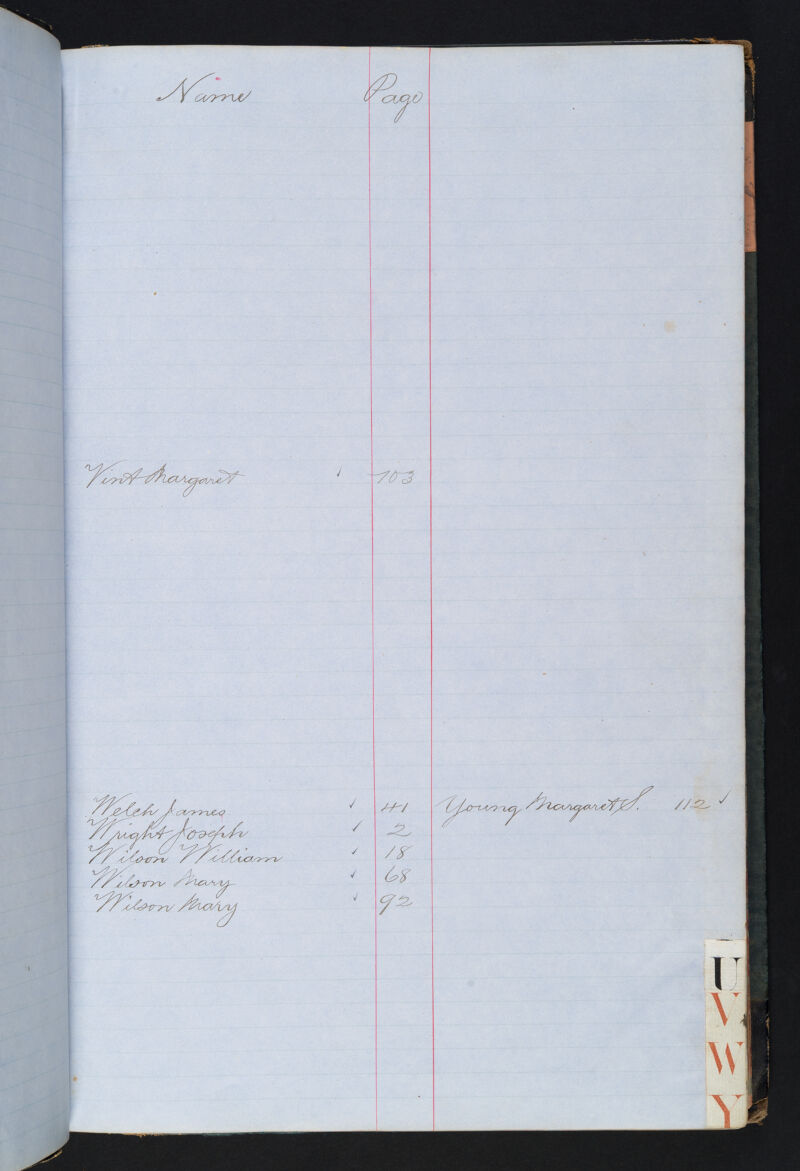 Name Page
Vint Margaret ✓ 103
Welch James ✓ 41 Young Margaret S. 112 ✓
Wright Joseph ✓ 2
Wilson William ✓ 18
Wilson Mary ✓ 68
Wilson Mary ✓ 92
U
V
W
Y